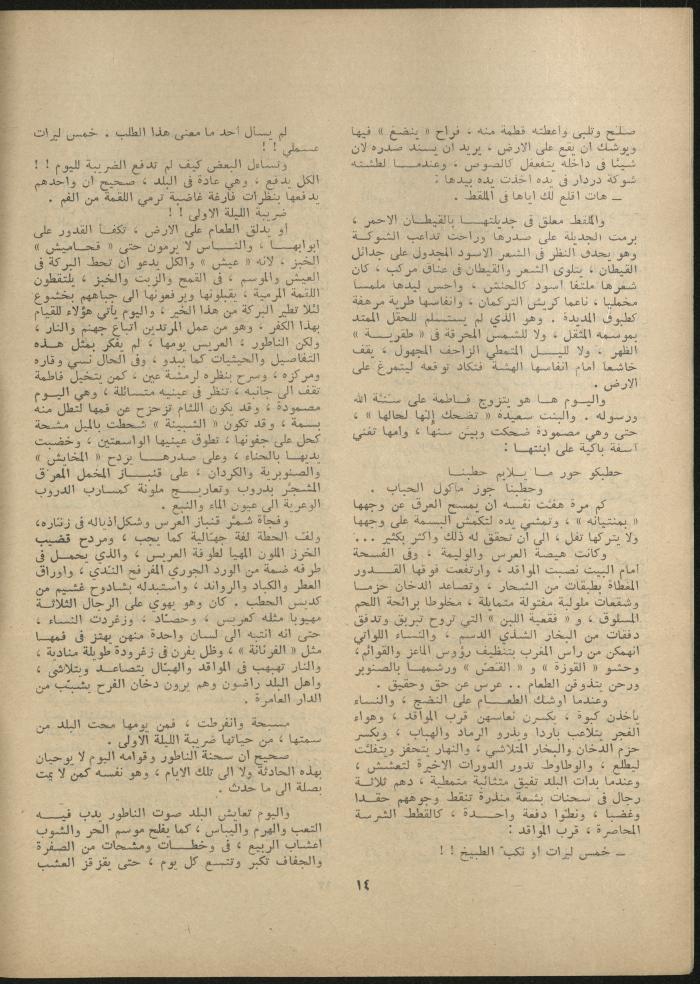 صلح وتلبى واعطته قطمة منه ، فراح « ينضغ » فيها
ويوشك ان يقع على الارض ، يريد ان يسند صدره لان
شيئا في داخله يتفعفل كالصوص . وعندمـا لطشته
شوكة دردار في يده اخذت يده بيدها :
ــ هات اقلع لك اياها في الملقط .
والملقط معلق في جديلتهـا بالقيطان الاحمر ،
برمت الجديلة على صدرها وراحت تداعب الشوكـة
وهو يحدق النظر في الشعر الاسود المجدول على جدائل
القيطان ، يتلوى الشعر والقيطان في عناق مركب ، كان
شعرها ملتفا اسود كالحنش ، واحس ليدها ملمسا
مخمليا ، ناعما كريش التركمان ، وانفاسها طرية مرهفة
كطيوف المديدة . وهو الذي لم يستسلم للحقل الممتد
بموسمه المثقل ، ولا للشمس المحرقة في « طفريـة »
الظهر ، ولا لليـل المتمطي الزاحف المجهول ، يقف
خاشعا امام انفاسها الهشة فتكاد توقعه ليتمرغ على
الارض .
واليـوم هـا هو يتزوج فـاطمة على سنة الله
ورسوله . والبنت سعيدة « تضحك إلها لحالها » ،
حتى وهي مصمودة ضحكت وبين سنها ، وامها تغني
آسفة باكية على ابنتهـا :
حطبكو حور مـا يلايم حطبنـا
وحطبنا جوز ماكول الحباب .
كم مرة هفت نفسه ان يمسح العرق عن وجهها
« بمنتيانه » ، وتمشي يده لتكمش البسمة على وجهها
ولا يتركها تفل ، الى أن تحقق له ذلك واكثر بكثير ...
وكانت هيصة العرس والوليمة ، وفي الفسحة
امام البيت نصبت المواقد ، وارتفعت فوقها القـدور
المغطاة بطبقات من الشحار ، وتصاعد الدخان حزمـا
وشقعات ملولبة مفتولة متمايلة ، مخلوطا برائحة اللحم
المسلوق ، و « فقعية اللبن » التي تروح تبربق وتدفق
دفقات من البخار الشذي الدسم ، والنساء اللواتي
انهمكن من رأس المغرب بتنظيف رؤوس الماعز والقوائم،
وحشو « القوزة » و « القبص » ورشمها بالصنوبر
ورحن يتذوقن الطعام .. عرس عن حق وحقيق .
وعندما اوشك الطعـام على النضج ، والنساء
يأخذن كبوة ، يكسرن نعاسهن قرب المواقد ، وهواء
الفجر يتلاعب باردا ويذرو الرماد والهباب ، ويكسر
حزم الدخان والبخار المتلاشي ، والنهار يتحفز ويتفلت
ليطلع ، والوطاوط تدور الدورات الاخيرة لتعشش ،
وعندما بدات البلد تفيق متثائبة متمطية ، دهم ثلاثـة
رجال في سحنات بشعة منذرة تنقط وجوههم حقـدا
وغضبا ، ونطوا دفعة واحـدة ، كالقطط الشرسة
المحاصرة ، قرب المواقد :
ــ خمس ليرات او نكب الطبيخ ! !
لم يسأل احد ما معنى هذا الطلب . خمس ليرات
عسملي ! !
وتساءل البعض كيف لم تدفع الضريبة لليوم ! !
الكل يدفع ، وهي عادة في البلد ، صحيح ان واحدهم
يدفعها بنظرات فارغة غاضبة ترمي اللقمة من الفم .
ضريبة الليلة الاولى ! !
او يدلق الطعام على الارض ، تكفـا القدور على
ابوابهـا ، والنـاس لا يرمون حتى « فحـاميش »
الخبز ، لانه « عيش » والكل يدعو ان تحط البركة في
العيش والموسم ، في القمح والزيت والخبز ، يلتقطون
اللقمة المرمية ، يقبلونها ويرفعونها الى جباههم بخشوع
لئلا تطير البركة من هذا الخير ، واليوم يأتي هؤلاء للقيام
بهذا الكفر ، وهو من عمل المرتدين اتباع جهنم والنار ،
ولكن الناطور ، العريس يومها ، لم يفكر بمثل هـذه
التفاصيل والحيثيات كما يبدو ، وفي الحال نسي وقاره
ومركزه ، وسرح بنظره لرمشة عين ، كمن يتخيل فاطمة
تقف الى جانبه ، تنظر في عينيه متسائلة ، وهي اليـوم
مصمودة ، وقد يكون اللثام تزحزح عن فمها لتطل منه
بسمة ، وقد تكون « الشبينة » شحطت بالميل مشحة
كحل على جفونها ، تطوق عينيها الواسعتين ، وخضبت
يديهـا بالحناء ، وعلى صدرهـا يردح « المخابش »
والصنوبرية والكردان ، على قنبـاز المخمل المعرق
المشجر بدروب وتعاريـج ملونة كمسارب الدروب
الوعرية الى عيون الماء والنبع .
وفجأة شمر قنباز العرس وشكل اذياله في زناره،
ولف الحطة لفة جهالية كما يجب ، ومردح قضيب
الخرز الملون المهيأ لطوفة العريس ، والذي يحمـل في
طرفه ضمة من الورد الجوري المفرفح الندي ، واوراق
العطر والكباد والرواند ، واستبدله بشادوح غشيم من
كديس الحطب . كان وهو يهوي على الرجال الثلاثـة
مهيوبا مثله كعريس ، وحصاد ، وزغردت النساء ،
حتى انه انتبه الى لسان واحدة منهن يهتز في فمهـا
مثل « الفرتانة » ، وظل يفرن في زغرودة طويلة منادية ،
والنار تهبهب في المواقد والهبال يتصاعـد ويتلاشى ،
واهل البلد راضون وهم يرون دخان الفرح يشبب من
الدار العامرة .
مسبحة وانفرطت ، فمن يومها محت البلد من
سمتها ، من حياتها ضريبة الليلة الاولى .
صحيح ان سحنة الناطور وقوامه اليوم لا يوحيان
بهذه الحادثة ولا الى تلك الايام ، وهو نفسه كمن لا يمت
بصلة الى ما حدث .
واليوم تعايش البلد صوت الناطور يدب فيـه
التعب والهرم واليباس ، كما يفلح موسم الحر والشوب
اعشاب الربيع ، في وخطـات ومشحات من الصفرة
والجفاف تكبر وتتسع كل يوم ، حتى يقزقز العشب
١٤